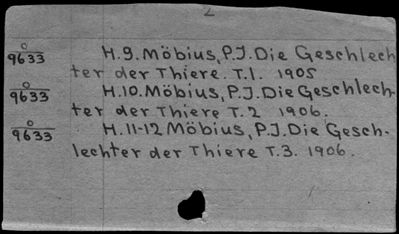 2
O H.9. Möbius, P.J. Die Geschlech
9633 ter der Thiere. T.1. 1905
O H.10. Möbius, P.J. Die Geschlech-
9633 ter der Thiere T.2 1906.
O H.11-12 Möbius, P.J. Die Gesch-
9633 lechter der Thiere T.3. 1906.